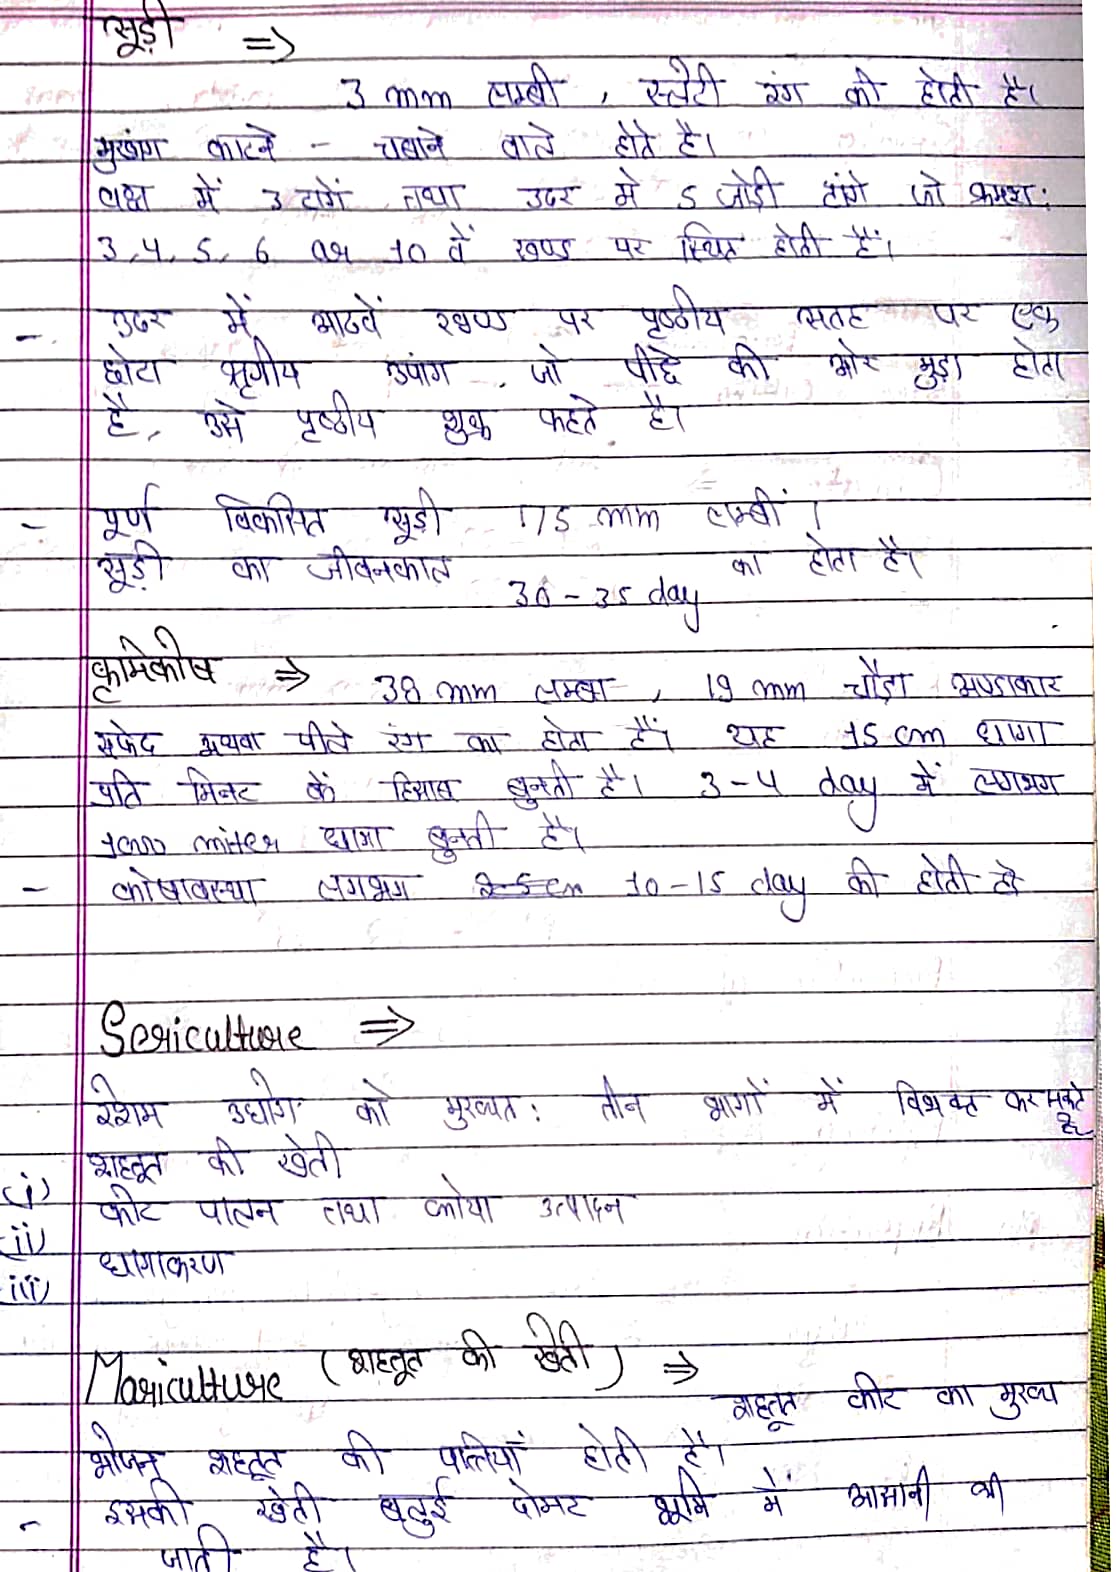 सूड़ी ⇒
3 mm लम्बी , स्लेटी रंग की होती है।
मुखांग काटने - चबाने वाले होते है।
वक्ष में 3 टांगें तथा उदर मे 5 जोड़ी टांगे जो क्रमश:
3, 4, 5, 6 व 10 वें खण्ड पर स्थित होती है।
- उदर में आठवें खण्ड पर पृष्ठीय सतह पर एक
छोटा श्रृगीय उपांग जो पीछे की ओर मुड़ा होता
है, उसे पृष्ठीय शुक्र कहते है।
- पूर्ण विकसित सूड़ी 75 mm लम्बीं ।
सूड़ी का जीवनकाल 30-35 day का होता है।
कृमिकोष ⇒ 38 mm लम्बा , 19 mm चौड़ा अण्डाकार
सफेद अथवा पीले रंग का होता हैं। यह 15 cm धागा
प्रति मिनट के हिसाब बुनती है। 3-4 day में लगभग
1000 miter धागा बुनती है।
- कोषावस्था लगभग 10-15 day की होती है
Sericulture ⇒
रेशम उधोग को मुख्यत: तीन भागों में विभक्त कर सकते है
(i) शहतूत की खेती
(ii) कीट पालन तथा कोया उत्पादन
(iii) धागाकरण
Mariculture (शहतूत की खेती) ⇒
शहतूत कीट का मुख्य
भोजन शहतूत की पत्तियाँ होती है।
- इसकी खेती बलुई दोमट भूमि में आसानी की
जाती है।